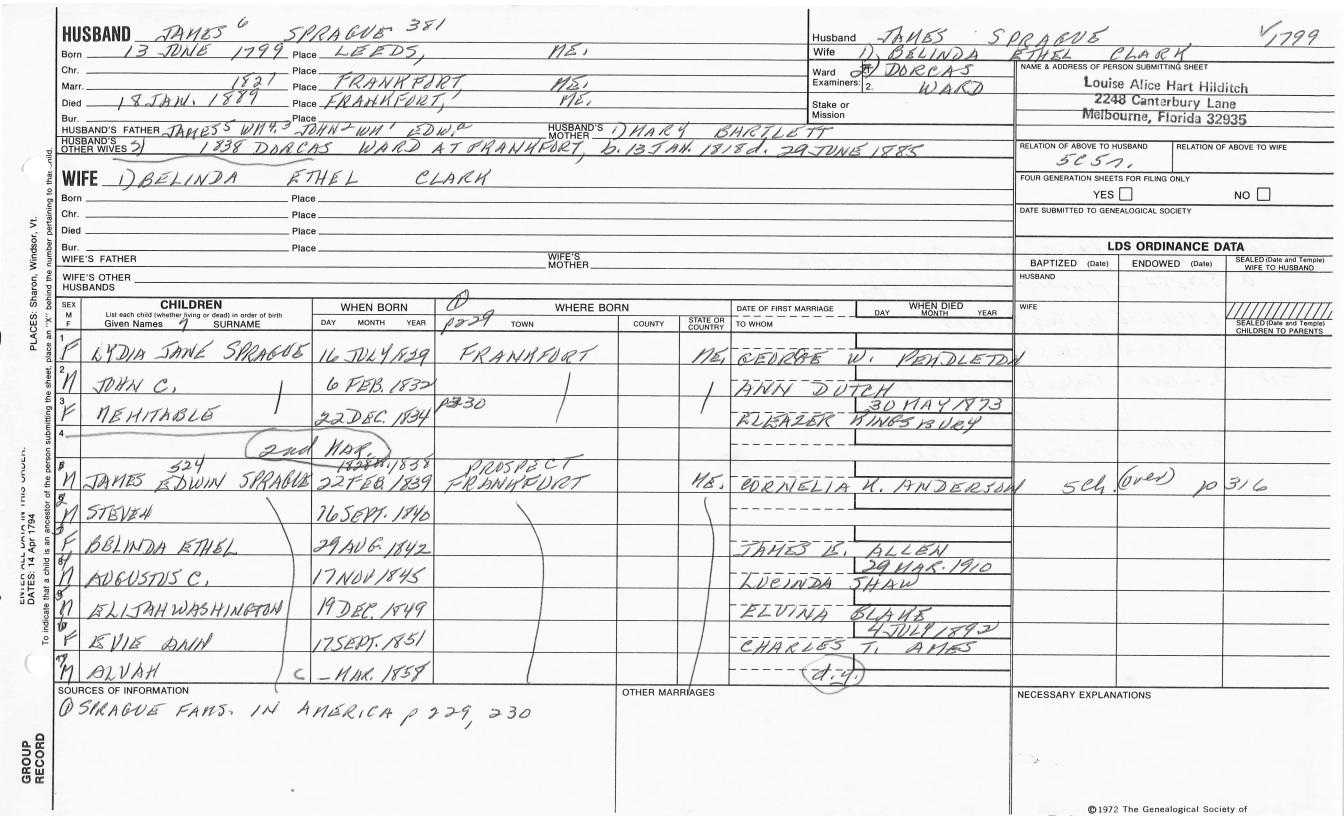 HUSBAND JAMES 6 SPRAGUE 381
Born 13 JUNE 1799 Place LEEDS, ME.
Chr. Place
Marr. 1827 Place FRANKFORT ME.
Died 18 JAN. 1889 Place FRANKFORT, ME.
Bur. Place
HUSBAND'S FATHER JAMES5 WM4,3 JOHN2 WM1 EDW.a HUSBAND'S MOTHER 1) MARY BARTLETT
HUSBAND'S OTHER WIVES 2) 1838 DORCAS WARD AT FRANKFORT, b. 13 JAN. 1818 d. 29 JUNE 1885
Husband JAMES SPRAGUE √1799
Wife 1) BELINDA ETHEL CLARK
Ward 2) DORCAS
Examiners: 2. WARD
Stake or Mission
NAME & ADDRESS OF PERSON SUBMITTING SHEET
Louise Alice Hart Hilditch
2248 Canterbury Lane
Melbourne, Florida 32935
RELATION OF ABOVE TO HUSBAND RELATION OF ABOVE TO WIFE
5C5r.
FOUR GENERATION SHEETS FOR FILING ONLY
YES NO
DATE SUBMITTED TO GENEALOGICAL SOCIETY
WIFE 1) BELINDA ETHEL CLARK
Born Place
Chr. Place
Died Place
Bur. Place
WIFE'S FATHER WIFE'S MOTHER
WIFE'S OTHER HUSBANDS
LDS ORDINANCE DATA
BAPTIZED (Date) ENDOWED (Date) SEALED (Date and Temple) WIFE TO HUSBAND
HUSBAND
WIFE
SEALED (Date and Temple) CHILDREN TO PARENTS
SEX M F
CHILDREN
List each child (whether living or dead) in order of birth
Given Names 7 SURNAME
WHEN BORN
DAY MONTH YEAR
① p229
WHERE BORN
TOWN COUNTY STATE OR COUNTRY
DATE OF FIRST MARRIAGE
TO WHOM
WHEN DIED
DAY MONTH YEAR
1 F LYDIA JANE SPRAGUE 16 JULY 1829 FRANKFORT ME. GEORGE W. PENDLETON
2 M JOHN C. 6 FEB. 1832 ANN DUTCH
3 F MEHITABLE 22 DEC. 1834 p230 30 MAY 1873
ELEAZER KINGSBURY
4 2nd MAR.
524 1838 PROSPECT
5 M JAMES EDWIN SPRAGUE 22 FEB 1839 FRANKFURT ME. CORNELIA K. ANDERSON 5ch. (over) p316
M STEVEN 16 SEPT. 1840
F BELINDA ETHEL 29 AUG. 1842 JAMES E. ALLEN
29 MAR. 1910
8 M AUGUSTUS C. 17 NOV 1845 LUCINDA SHAW
9 M ELIJAH WASHINGTON 19 DEC. 1849 ELVINA BLAKE
4 JULY 1892
10 F EVIE ANN 17 SEPT. 1851 CHARLES T. AMES
M ALVAH c – MAR. 1858 d.y.
SOURCES OF INFORMATION
① SPRAGUE FAMS. IN AMERICA p 229, 230
OTHER MARRIAGES
NECESSARY EXPLANATIONS
©1972 The Genealogical Society of
PLACES: Sharon, Windsor, Vt.
ENTER ALL DATA IN THIS ORDER:
DATES: 14 Apr 1794
To indicate that a child is an ancestor of the person submitting the sheet, place an "X" behind the number pertaining to that child.
GROUP RECORD